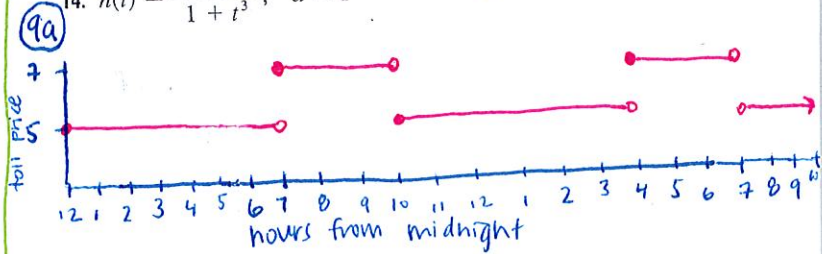 14. h(t)
1 + t³
9a
7
5
toll price
12 1 2 3 4 5 6 7 8 9 10 11 12 1 2 3 4 5 6 7 8 9 10
hours from midnight